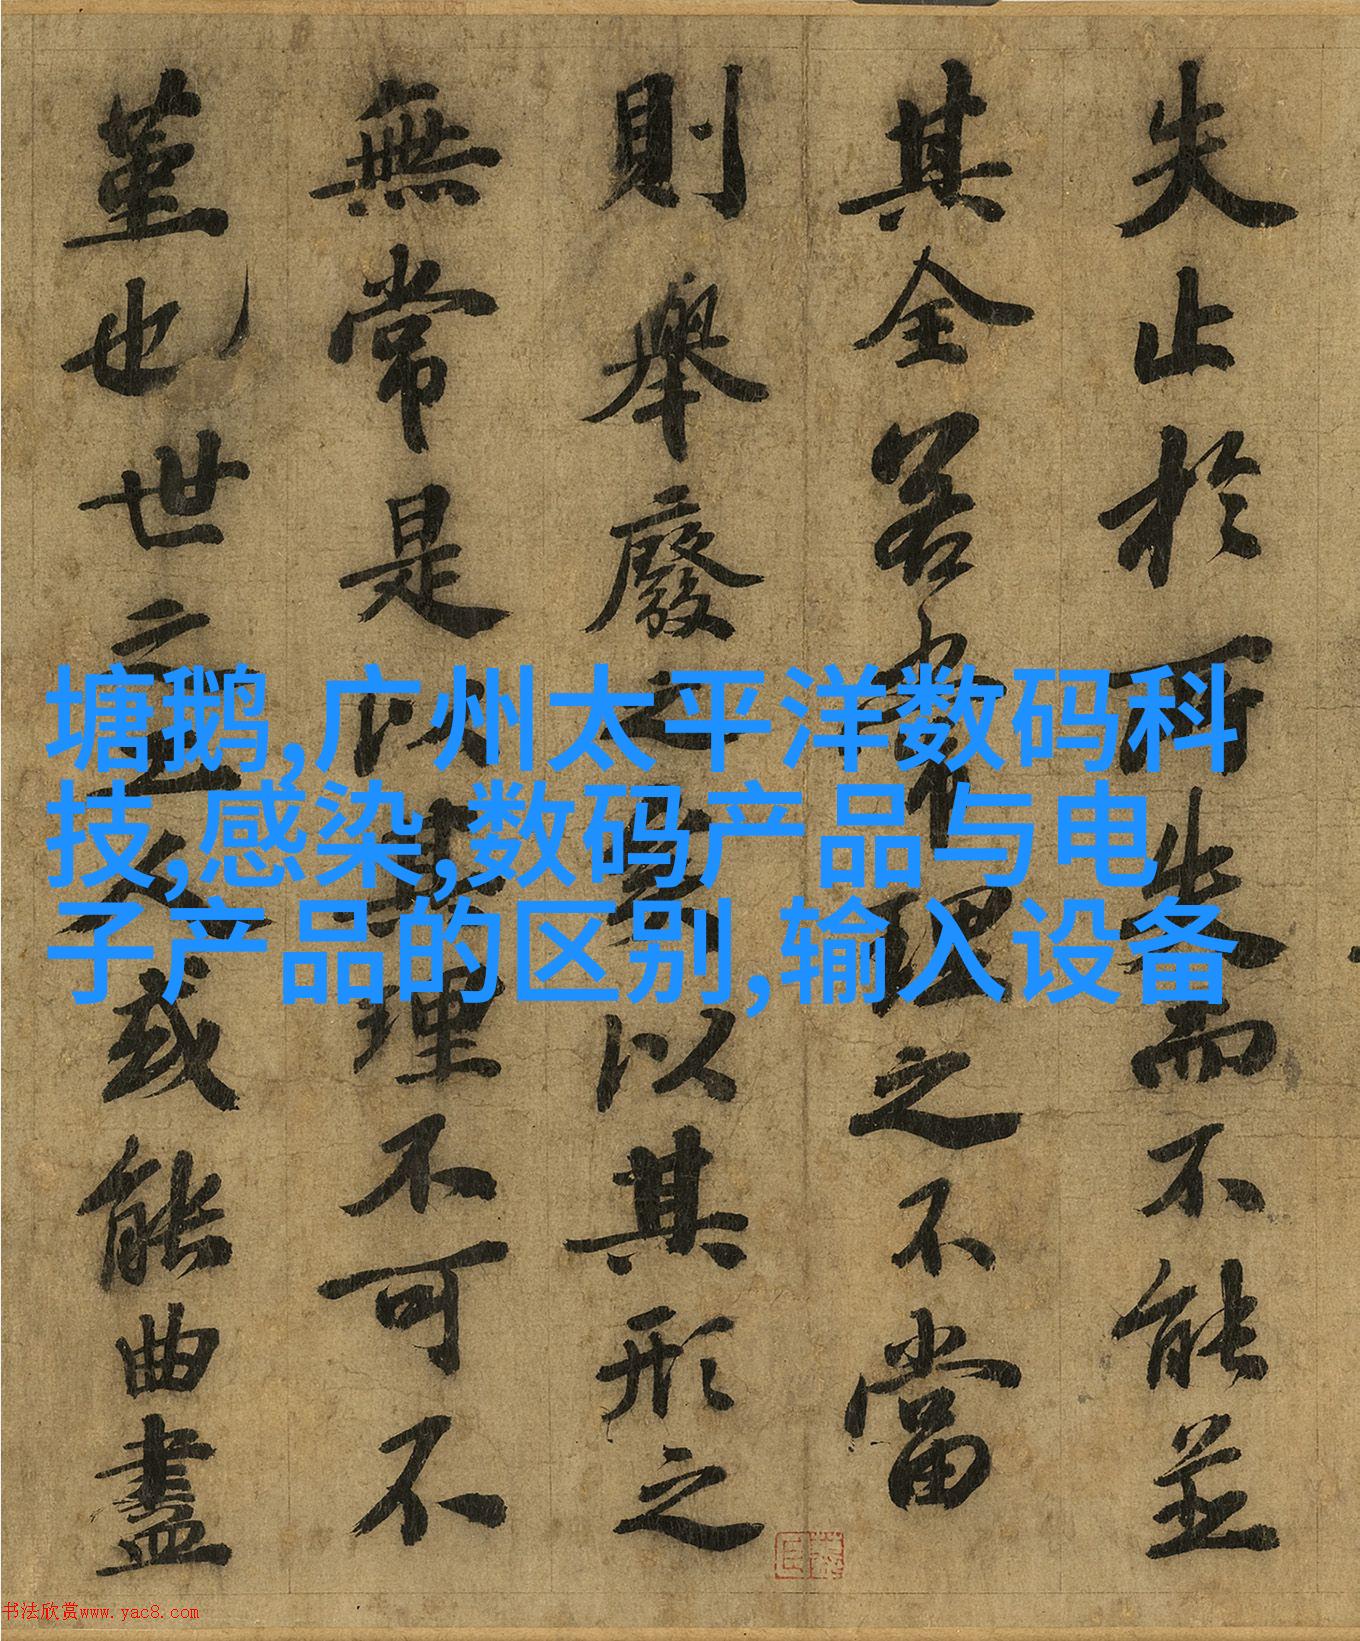 失止於所失而不能並
其全若常理之不當
則舉廢之矣以其形之
無常是以其理不可不
堇也世之工人或能曲盡
塘鹅,广州太平洋数码科
技,感染,数码产品与电
子产品的区别,输入设备
书法欣赏www.yac8.com